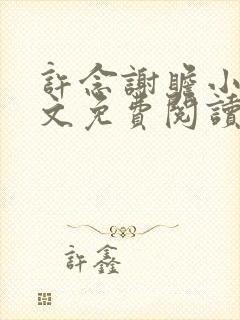 許念謝瞻小
文免費閱讀
許鑫